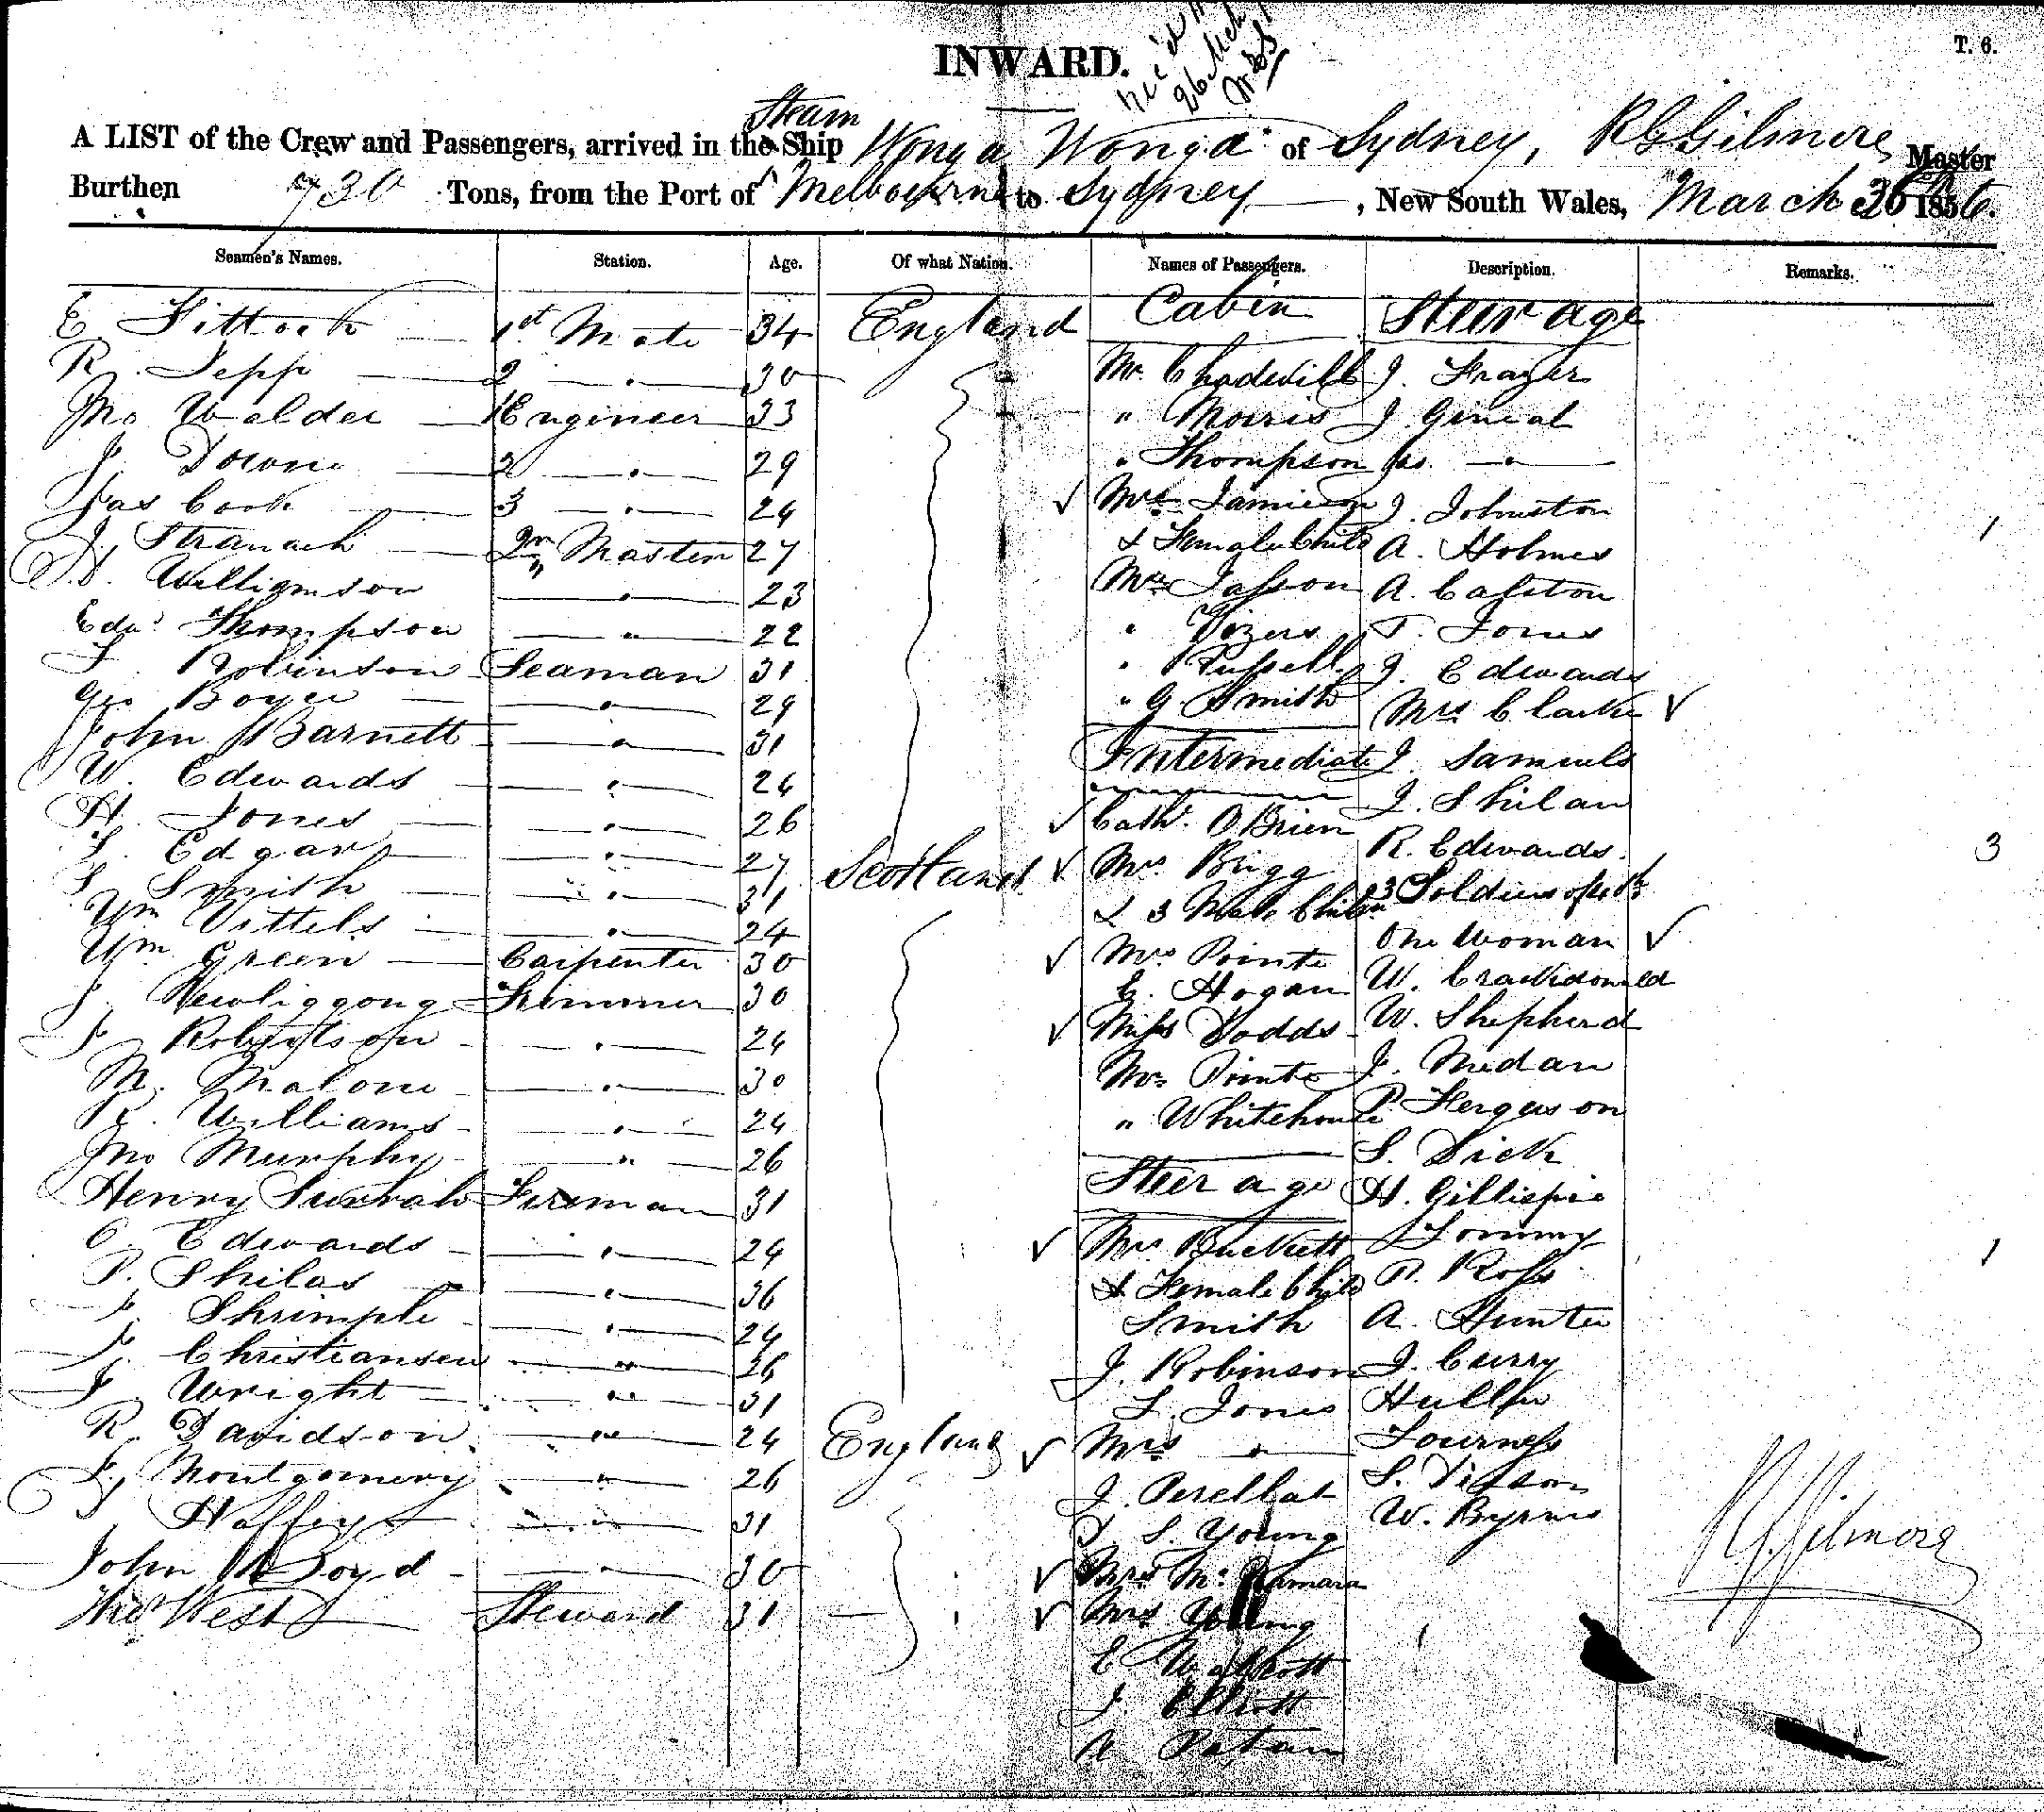 INWARD.
T. 6.
26 Mch
Steam
A LIST of the Crew and Passengers, arrived in the Ship Wonga Wonga of Sydney, R G Gilmore Master
Burthen 730 Tons, from the Port of Melbourne to Sydney, New South Wales, March 26th 1856.
Seamen's Names. Station. Age. Of what Nation. Names of Passengers. Description. Remarks.
E 1st Mate 34 England Cabin Steerage
R. Jepp 2 " 30 Mr. J. Frazer
Jno Welder 1 Engineer 33 " Morris J.
J. Downe 2 " 29 " Thompson Jas. "
Jas Cook 3 " 24 ✓ Mrs Jamieson J. Johnston 1
J. Stranach Qr Master 27 & Female Child A. Holmes
H. Williamson " 23 Mr A. Calston
Edw. Thompson " 22 " Vizers T. Jones
T. Robinson Seaman 31 " Russell J. Edwards
Geo Boyce " 29 " G Smith Mrs Clarke ✓
John Barnett " 31 Intermediate J. Samuels
W. Edwards " 24 J. Shilan
H. Jones " 26 ✓ Cath. O Brien R. Edwards
T. Edgar " 27 Scotland ✓ Mrs Brigg 3 Soldiers 3
S. Smith " 31 & 3 Male Children One Woman ✓
Wm Vittels " 24 ✓ Mrs Pointe W.
Wm Green Carpenter 30 E. Hogan W. Shepherd
J. Trimmer 30 ✓ Miss Dodds J. Medan
J. Robertson " 24 Mr Pointe P Ferguson
M. Malone " 30 " Whitehouse S. Dick
R. Williams " 24 Steerage H. Gillispie
Jno Murphy " 26 ✓ Mrs Buckett Tommy 1
Henry Fireman 31 & Female Child R. Ross
C. Edwards " 24 Smith A. Hunter
P. Shilas " 36 J. Robinson J. Curry
J. Shrimple " 24 L. Jones
J. Christiansen " 26 ✓ Mrs " Tourness
J. Wright " 31 J. Perellat S.
R. Davidson " 24 England S. Young W. Byrnes
J. Montgomery " 26 ✓ Mrs McNamara
Halfey " 31 ✓ Mrs Young
John Boyd " 30 E
Thos West Steward 31 J Elliott
R G Gilmore